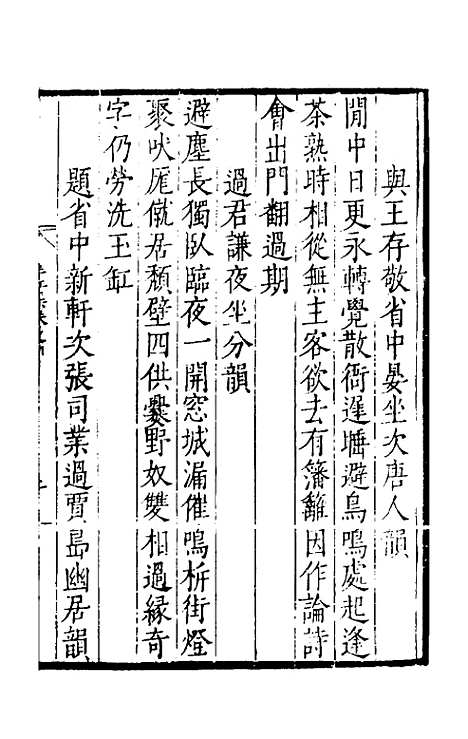 與王存敬省中晏坐次唐人韻
閒中日更永轉覺散衙遲睡避鳥鳴處起逢
茶熟時相從無主客欲去有籓籬因作論詩
會出門翻過期
過君謙夜坐分韻
避塵長獨臥臨夜一開窓城漏催鳴柝街燈
聚吠厖僦居頹壁四供爨野奴雙相過緣奇
字仍勞洗玉缸
題省中新軒次張司業過賈島幽居韻